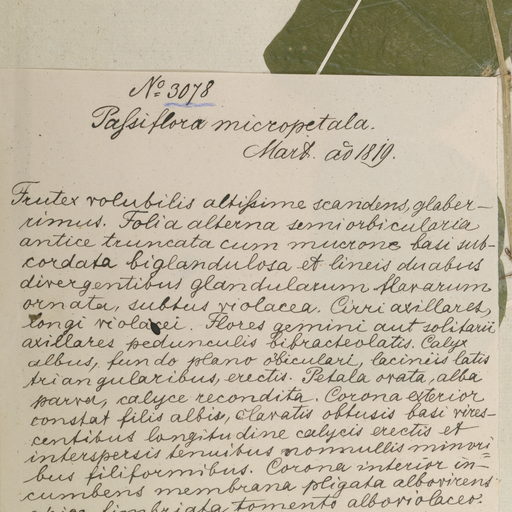 No. 3078
Paſsiflora micropetala.
Mart. aõ 1819.
Frutex volubilis altiſsime scandens, glaber-
rimus. Folia alterna semiorbicularia
antice truncata cum mucrone basi sub-
cordata biglandulosa et lineis duabus
divergentibus glandularum flavarum
ornata, subtus violacea. Cirri axillares,
longi violacei. Flores gemini aut solitarii
axillares pedunculis bibracteolatis. Calyx
albus, fundo plano orbiculari, laciniis latis
triangularibus, erectis. Petala ovata, alba
parva, calyce recondita. Corona exterior
constat filis albis, clavatis obtusis basi vires-
centibus longitudine calycis erectis et
interspersis tenuibus nonnullis minori-
bus filiformibus. Corona interior in-
cumbens membrana pligata albovirens
fimbriata, tomento alboviolaceo.